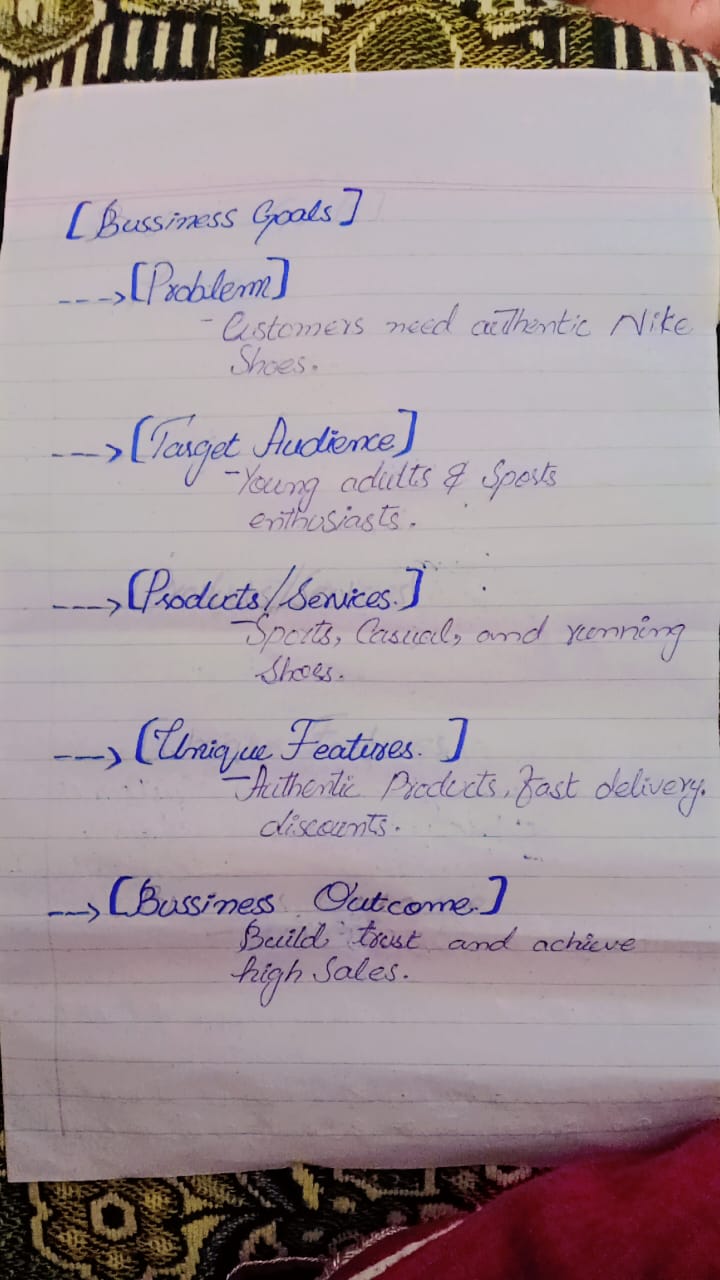 [Bussiness Goals]
---> [Problem]
- Customers need authentic Nike
Shoes.
---> [Target Audience]
- Young adults & Sports
enthusiasts.
---> [Products/Services.]
- Sports, Casual, and running
Shoes.
---> [Unique Features. ]
- Authentic Products, fast delivery.
discounts.
---> [Bussiness Outcome.]
Build trust and achieve
high Sales.